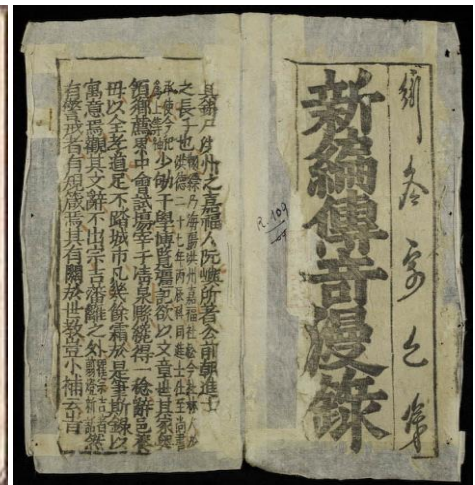 新編傳奇漫錄
R.109
其錄乃洪州之嘉福人阮嶼所著公前朝進士
之長子也洪德二十七年丙辰科同進士仕至尚書
少劬于學博覽強記欲以文章世其家粵
領鄉薦累中會試場宰于清泉縣纔得一稔辭邑養
母以全孝道足不踏城市凡幾餘霜於是筆斯錄以
寓意焉觀其文辭不出宗吉藩籬之外剪燈新話然
有警戒者有規箴焉其有關於世教豈小補云